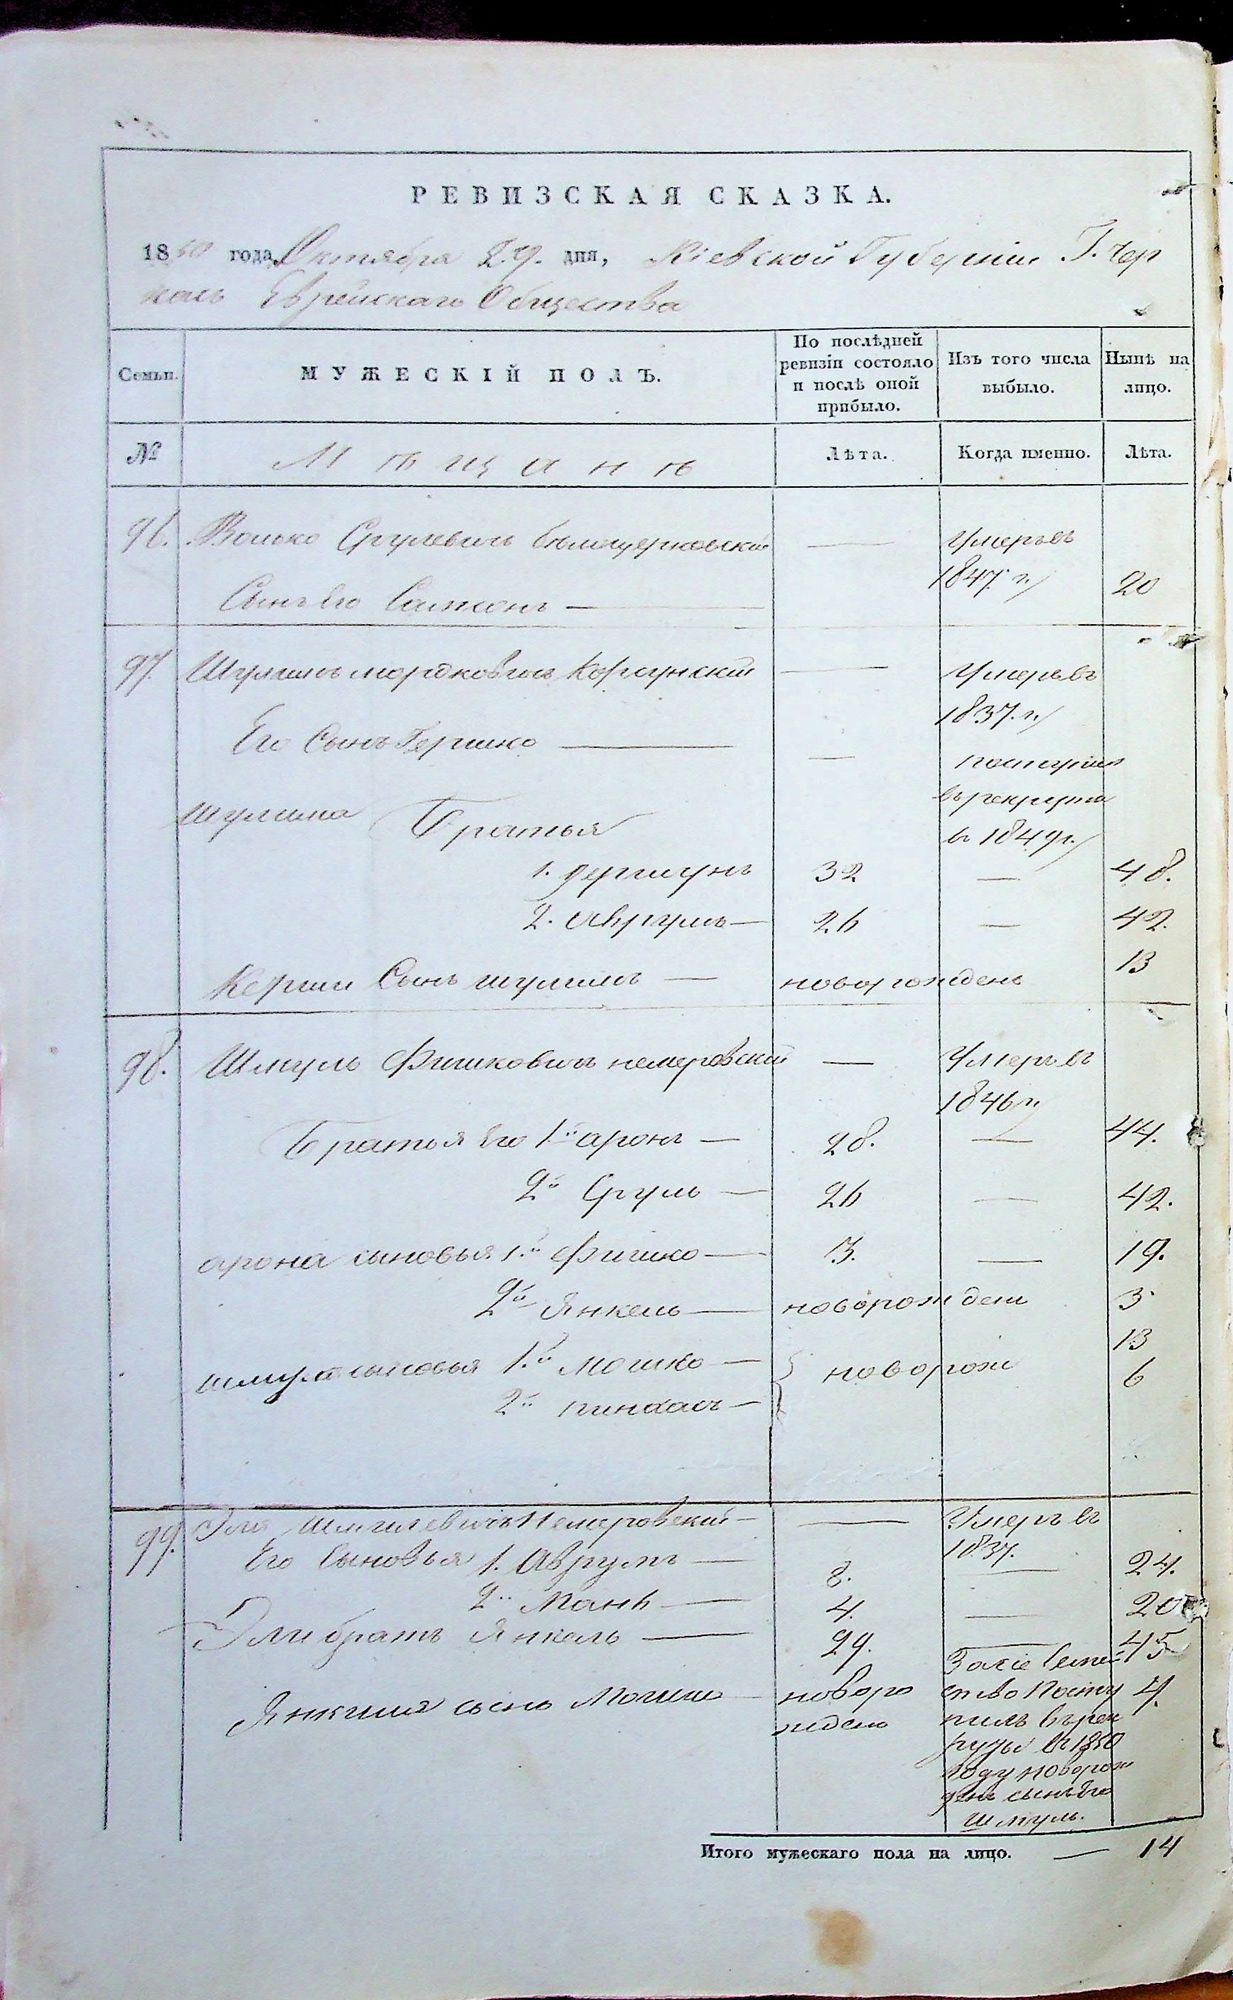 РЕВИЗСКАЯ СКАЗКА.
1850 года Октября 29. дня, Кіевской Губерніи Г. Чер
касъ Еврейскаго Общества
Семьи.
МУЖЕСКІЙ ПОЛЪ.
По послѣдней
ревизіи состояло
и послѣ оной
прибыло.
Изъ того числа
выбыло.
Нынѣ на
лицо.
№
Мѣщанѣ
Лѣта.
Когда именно.
Лѣта.
96. Волько Срулевичъ Бѣлоцерковскій — Умеръ въ
1847 г. 20
Сынъ его —
97. Шулимъ Мордковичъ Корсунскій — Умеръ въ
1837. г.
Его Сынъ Гершко — — поступилъ
въ рекруты
в 1849 г.
Шулима Братья
1. Гершунъ 32 — 48.
2. Аврумъ — 26 — 42.
Сынъ Шулимъ — новорожденъ 13
98. Шмуль Фишковичъ Немеровскій — Умеръ въ
1846 г.
Братья Его 1й Аронъ — 28. — 44.
2й Сруль — 26 — 42.
Арона сыновья 1й Фишко — 3. — 19.
2й Янкель — новорожден 3
Шмуля сыновья 1й Мошко — новорож 13
2й Пинхасъ — 6
99. Эля Немеровскій — — Умеръ въ
1837.
Его Сыновья 1. Аврумъ — 8. — 24.
2й — 4. — 20
Эли братъ Янкель — 29. — 45
Янкиля сынъ Мошко — новоро
ждено 4.
Семей
ство Посту
пилъ въ рек
руты въ 1850
году новорож
денъ сынъ Его
Шмуль.
Итого мужескаго пола на лицо. — 14